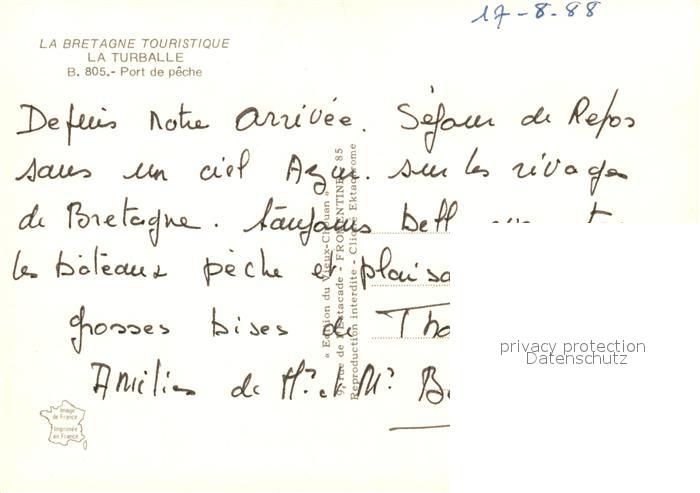 17-8-88
LA BRETAGNE TOURISTIQUE
LA TURBALLE
B. 805.- Port de pêche
Depuis notre arrivée. Séjour de Repos
sous un ciel Azur. sur les rivages
de Bretagne. toujours
les bâteaux pêche et
grosses bises de
Amitiés de Mr et Mr
« Edition du Vieux-Chouan »
rue de l'Estacade - FROMENTINE - 85
Reproduction interdite - Cliché Ektachrome
Image
de France
Imprimée
en France
privacy protection
Datenschutz